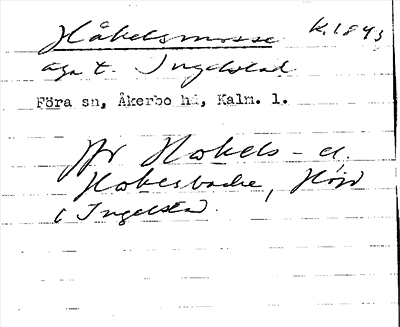 Håkelsmosse k. 1843
äga t. Ingelstad
Föra sn, Åkerbo hd, Kalm. l.
Jfr Hokels- el.
Hokesbacke, Höjd
i Ingelstad.